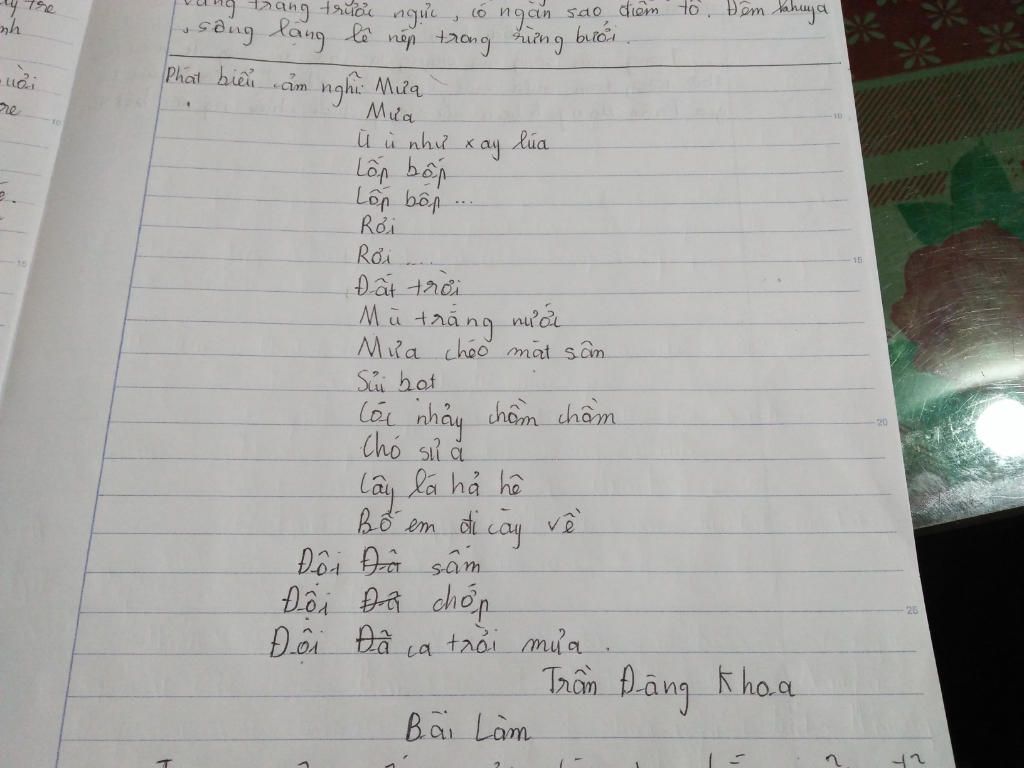 vầng trăng trước ngực, có ngàn sao điểm tô. Đêm khuya
, sông lặng lẽ nép trong rừng bưởi.
Phát biểu cảm nghĩ: Mưa
Mưa
Ù ù như xay lúa
Lốp bốp
Lốp bốp ...
Rơi
Rơi ....
Đất trời
Mù trắng nước
Mưa chéo mặt sân
Sủi bọt
Cóc nhảy chồm chồm
Chó sủa
Cây lá hả hê
Bố em đi cày về
Đội Đã sấm
Đội Đã chớp
Đội Đã cả trời mưa.
Trần Đăng Khoa
Bài Làm